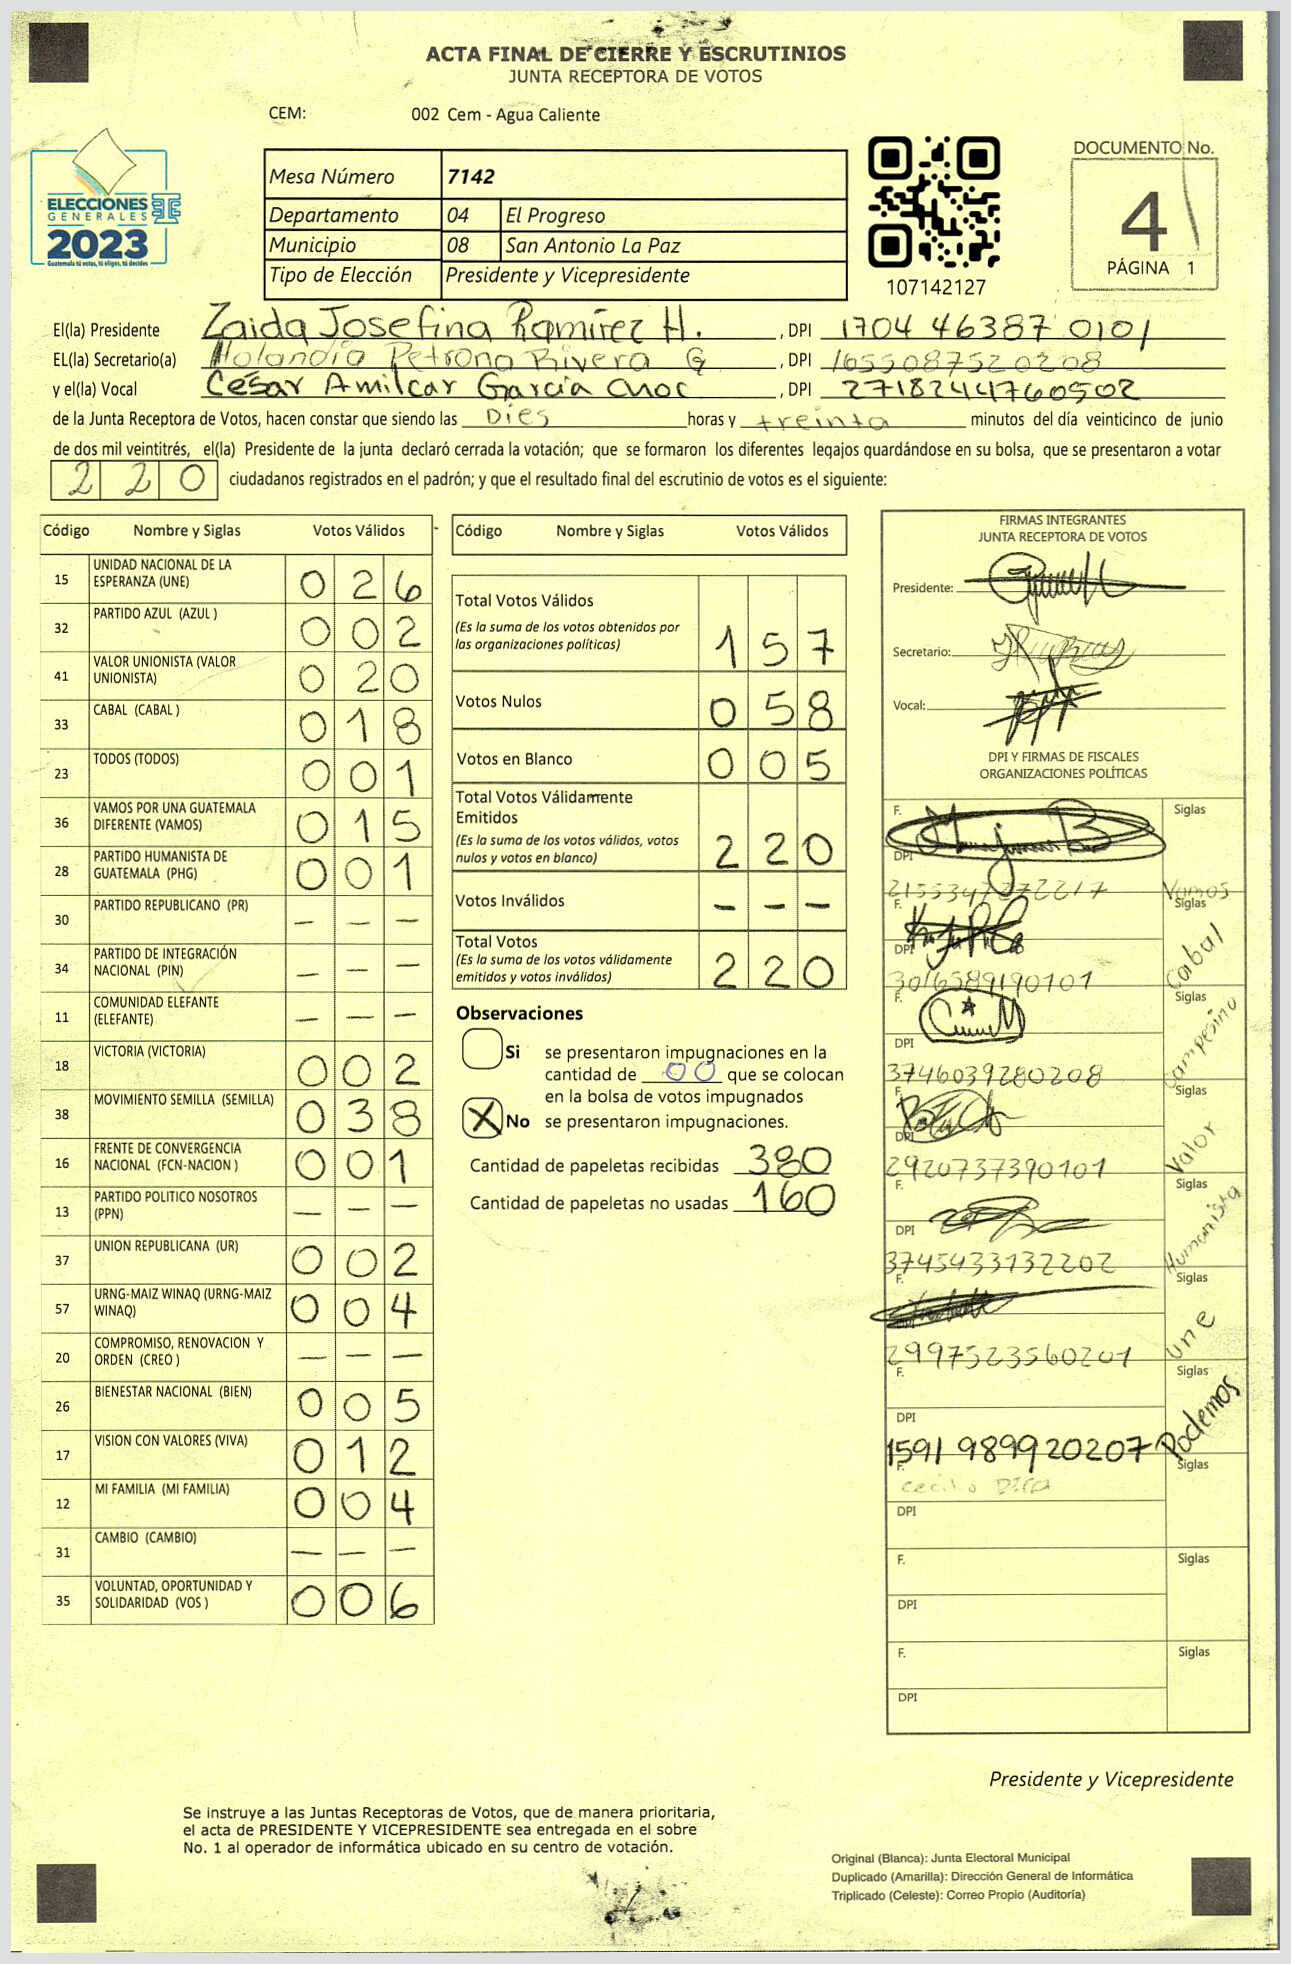 ACTA FINAL DE CIERRE Y ESCRUTINIOS
JUNTA RECEPTORA DE VOTOS
CEM: 002 Cem - Agua Caliente
ELECCIONES
GENERALES
2023
Guatemala tú votas, tú eliges, tú decides
Mesa Número 7142
Departamento 04 El Progreso
Municipio 08 San Antonio La Paz
Tipo de Elección Presidente y Vicepresidente
107142127
DOCUMENTO No.
4
PÁGINA 1
El(la) Presidente Zaida Josefina Ramírez H. , DPI 1704 46387 0101
EL(la) Secretario(a) Holandia Petrona Rivera G , DPI 1655087520208
y el(la) Vocal César Amilcar García Choc , DPI 2718244760502
de la Junta Receptora de Votos, hacen constar que siendo las Dies horas y treinta minutos del día veinticinco de junio
de dos mil veintitrés, el(la) Presidente de la junta declaró cerrada la votación; que se formaron los diferentes legajos guardándose en su bolsa, que se presentaron a votar
220 ciudadanos registrados en el padrón; y que el resultado final del escrutinio de votos es el siguiente:
Código Nombre y Siglas Votos Válidos
15 UNIDAD NACIONAL DE LA ESPERANZA (UNE) 026
32 PARTIDO AZUL (AZUL ) 002
41 VALOR UNIONISTA (VALOR UNIONISTA) 020
33 CABAL (CABAL ) 018
23 TODOS (TODOS) 001
36 VAMOS POR UNA GUATEMALA DIFERENTE (VAMOS) 015
28 PARTIDO HUMANISTA DE GUATEMALA (PHG) 001
30 PARTIDO REPUBLICANO (PR) — — —
34 PARTIDO DE INTEGRACIÓN NACIONAL (PIN) — — —
11 COMUNIDAD ELEFANTE (ELEFANTE) — — —
18 VICTORIA (VICTORIA) 002
38 MOVIMIENTO SEMILLA (SEMILLA) 038
16 FRENTE DE CONVERGENCIA NACIONAL (FCN-NACION ) 001
13 PARTIDO POLITICO NOSOTROS (PPN) — — —
37 UNION REPUBLICANA (UR) 002
57 URNG-MAIZ WINAQ (URNG-MAIZ WINAQ) 004
20 COMPROMISO, RENOVACION Y ORDEN (CREO ) — — —
26 BIENESTAR NACIONAL (BIEN) 005
17 VISION CON VALORES (VIVA) 012
12 MI FAMILIA (MI FAMILIA) 004
31 CAMBIO (CAMBIO) — — —
35 VOLUNTAD, OPORTUNIDAD Y SOLIDARIDAD (VOS ) 006
Código Nombre y Siglas Votos Válidos
Total Votos Válidos
(Es la suma de los votos obtenidos por
las organizaciones políticas) 157
Votos Nulos 058
Votos en Blanco 005
Total Votos Válidamente
Emitidos
(Es la suma de los votos válidos, votos
nulos y votos en blanco) 220
Votos Inválidos – – –
Total Votos
(Es la suma de los votos válidamente
emitidos y votos inválidos) 220
Observaciones
Si se presentaron impugnaciones en la
cantidad de 00 que se colocan
en la bolsa de votos impugnados
X No se presentaron impugnaciones.
Cantidad de papeletas recibidas 380
Cantidad de papeletas no usadas 160
FIRMAS INTEGRANTES
JUNTA RECEPTORA DE VOTOS
Presidente:
Secretario:
Vocal:
DPI Y FIRMAS DE FISCALES
ORGANIZACIONES POLÍTICAS
F. Siglas
DPI
2155347272217 Vamos
F. Siglas
DPI
3016589190101 Cabal
F. Siglas
DPI
3746039280208 Campesino
F. Siglas
DPI
2920737390101 Valor
F. Siglas
DPI
3745433132202 Humanista
F. Siglas
2997523560201 Une
F. Siglas
DPI
1591 989920207 Podemos
F. Siglas
DPI
F. Siglas
DPI
F. Siglas
DPI
Presidente y Vicepresidente
Se instruye a las Juntas Receptoras de Votos, que de manera prioritaria,
el acta de PRESIDENTE Y VICEPRESIDENTE sea entregada en el sobre
No. 1 al operador de informática ubicado en su centro de votación.
Original (Blanca): Junta Electoral Municipal
Duplicado (Amarilla): Dirección General de Informática
Triplicado (Celeste): Correo Propio (Auditoría)